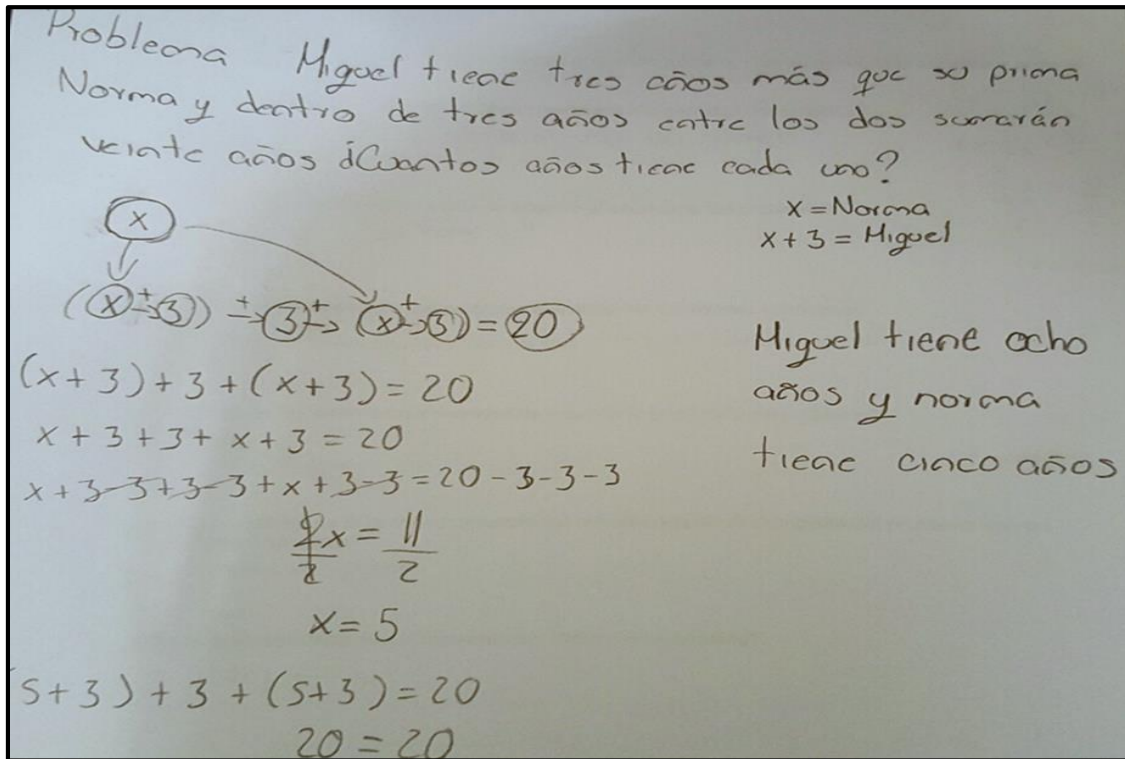 Problema Miguel tiene tres años más que su prima
Norma y dentro de tres años entre los dos sumarán
veinte años ¿Cuantos años tiene cada uno?
x = Norma
x + 3 = Miguel
x
((x + 3)) + 3 + (x + 3) = 20
(x + 3) + 3 + (x + 3) = 20
x + 3 + 3 + x + 3 = 20
x + 3 - 3 + 3 - 3 + x + 3 - 3 = 20 - 3 - 3 - 3
2x/2 = 11/2
x = 5
(5 + 3) + 3 + (5 + 3) = 20
20 = 20
Miguel tiene ocho
años y norma
tiene cinco años